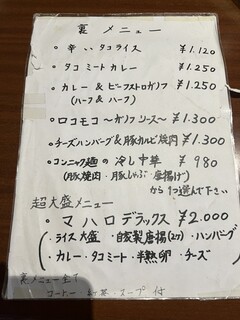 裏 メニュー
・辛い タコライス ¥1.120
・タコ ミート カレー ¥1.250
・カレー & ビーフストロガノフ ¥1.250
(ハーフ & ハーフ)
・ロコモコ 〜ガリソース〜 ¥1.300
・チーズハンバーグ&豚カルビ焼肉 ¥1.300
・コンニャク麺の冷し中華 ¥980
(豚焼肉・豚しゃぶ・唐揚げ)
から1つ選んで下さい
超大盛メニュー
・マハロデラックス ¥2.000
(・ライス大盛・自家製唐揚(2ケ)・ハンバーグ
・カレー・タコミート・半熟卵・チーズ)
裏メニュー全て
スープ付